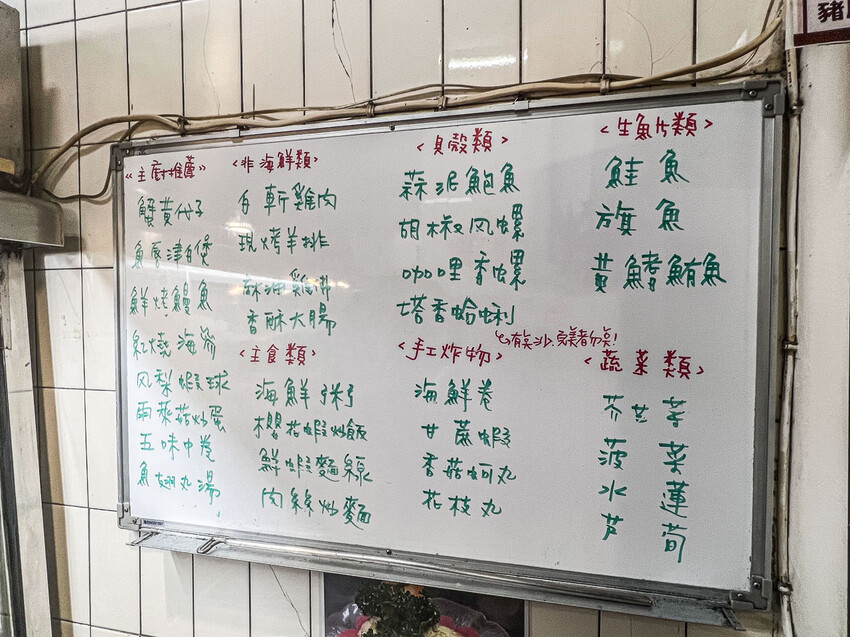 豬
«主廚推薦»
蟹黃代子
魚唇津白煲
鮮烤鰻魚
紅燒海參
风梨蝦球
雨來菇炒蛋
五味中卷
魚翅丸湯
<非海鮮類>
白斬雞肉
現烤羊排
香酥大腸
<主食類>
海鮮粥
櫻花蝦炒飯
鮮蝦麵線
肉絲炒麵
<貝殼類>
蒜泥鮑魚
胡椒风螺
咖哩香螺
塔香蛤蜊
有美沙,完美者勿點!
<手工炸物>
海鮮卷
甘蔗蝦
香菇蚵丸
花枝丸
<生魚片類>
鮭魚
旗魚
黃鰭鮪魚
<蔬菜類>
菠菜
水蓮
芦荀